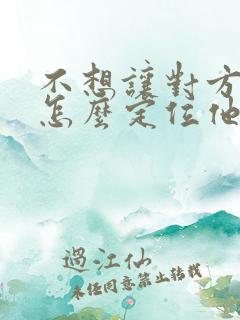 不想讓對方
怎麼定位他
過江仙
未經同意禁止轉載